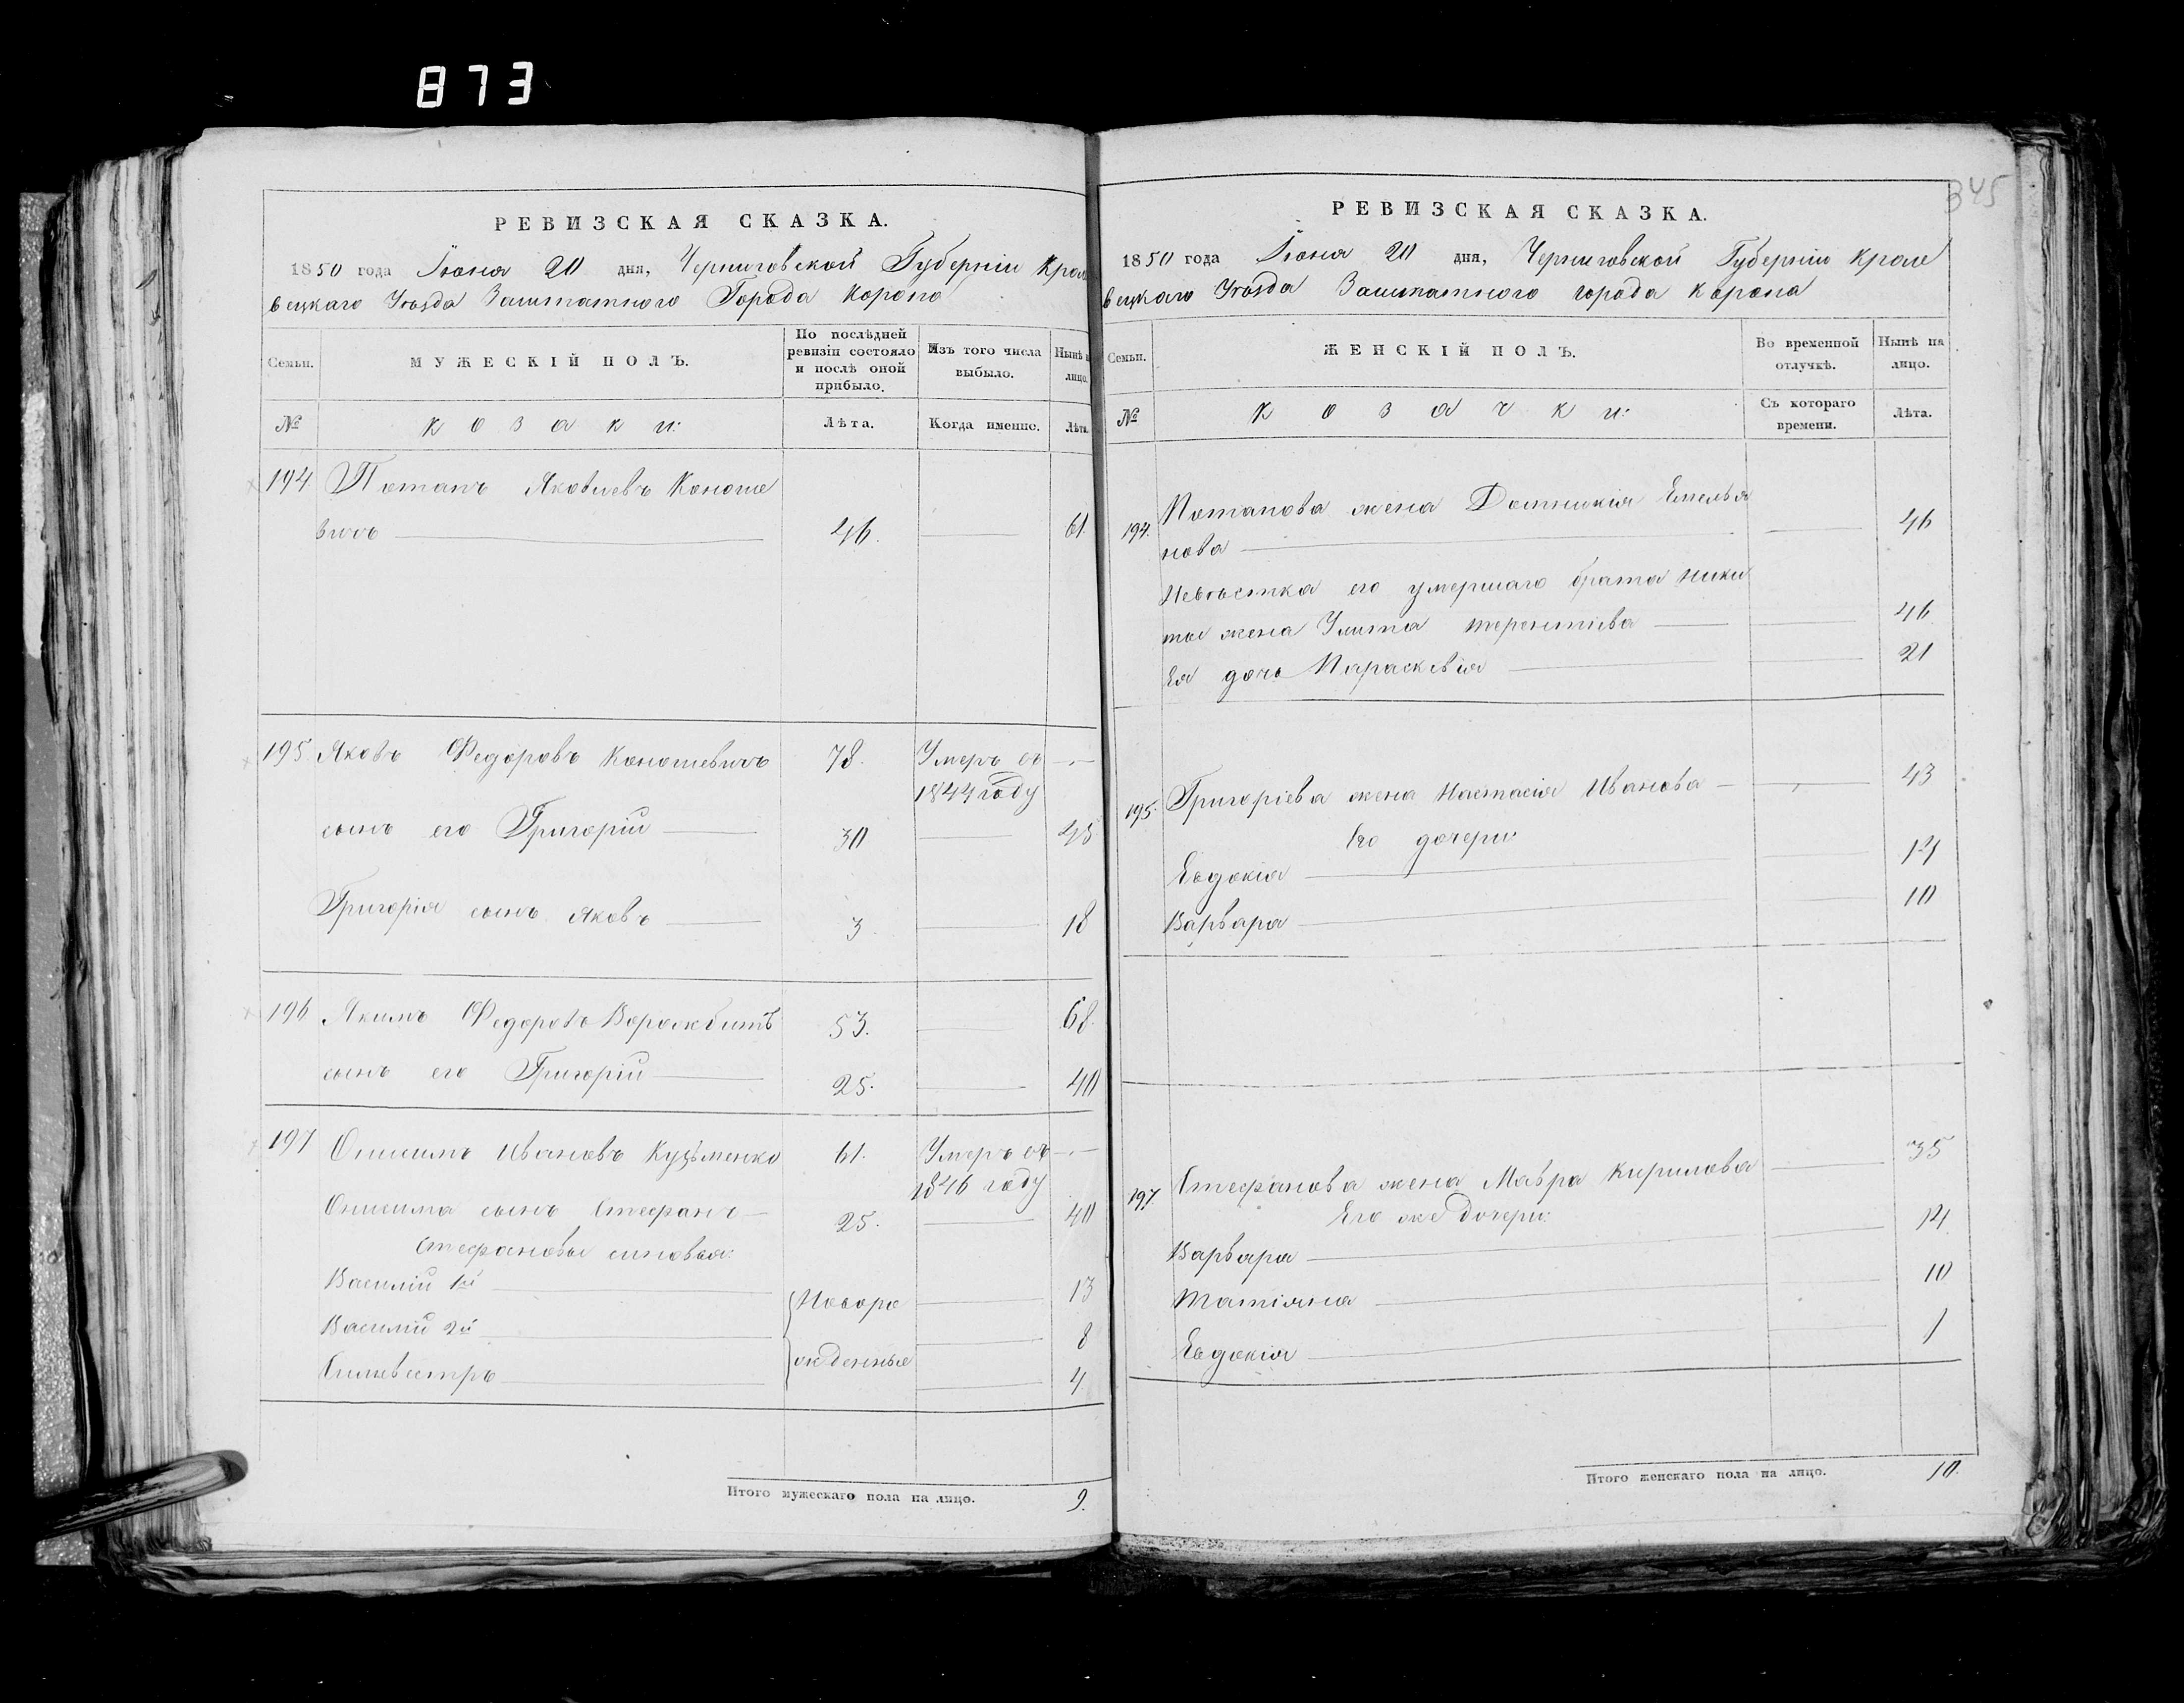 873
РЕВИЗСКАЯ СКАЗКА.
1850 года Іюня 20 дня, Черниговской Губерніи Кроле
вецкаго Уѣзда Заштатного Города Коропо
Семьи.
МУЖЕСКІЙ ПОЛЪ.
По послѣдней ревизіи состояло и послѣ оной прибыло.
Изъ того числа выбыло.
Нынѣ на лицо.
№
козаки:
Лѣта.
Когда именно.
Лѣта.
194 Потапъ Яковлевъ Коноше
вичъ 46. 61.
195 Яковъ Федоровъ Коношевичъ 78. Умеръ въ
1844 году
сынъ его Григорій 30 45
Григорія сынъ Яковъ 3 18
196 Якимъ Федоровъ Ворожбитъ 53. 68.
сынъ его Григорій 25. 40
197 Онисимъ Ивановъ Кузьменко 61. Умеръ въ
1846 году
Онисима сынъ Стефанъ 25. 40
Стефановы синовья:
Василій 1й 13
Новоро
Василій 2й 8
жденные
Силивестръ 4
Итого мужескаго пола на лицо. 9.
345
РЕВИЗСКАЯ СКАЗКА.
1850 года Іюня 20 дня, Черниговской Губерніи Кроле
вецкаго Уѣзда Заштатного города Коропа
Семьи.
ЖЕНСКІЙ ПОЛЪ.
Во временной отлучкѣ.
Нынѣ на лицо.
№
козачки:
Съ котораго времени.
Лѣта.
194. Потапова жена Домникія Емелья
нова 46
Невѣстка его умершаго брата Ники
ты жена Улита Терентіева 46
Ея дочь Параскевія 21
195. Григоріева жена Настасія Иванова 43
Его дочери:
Евдокія 14
Варвара 10
197. Стефанова жена Мавра Кирилова 35
Его же дочери:
Варвара 14
Татіяна 10
Евдокія 1
Итого женскаго пола на лицо. 10.